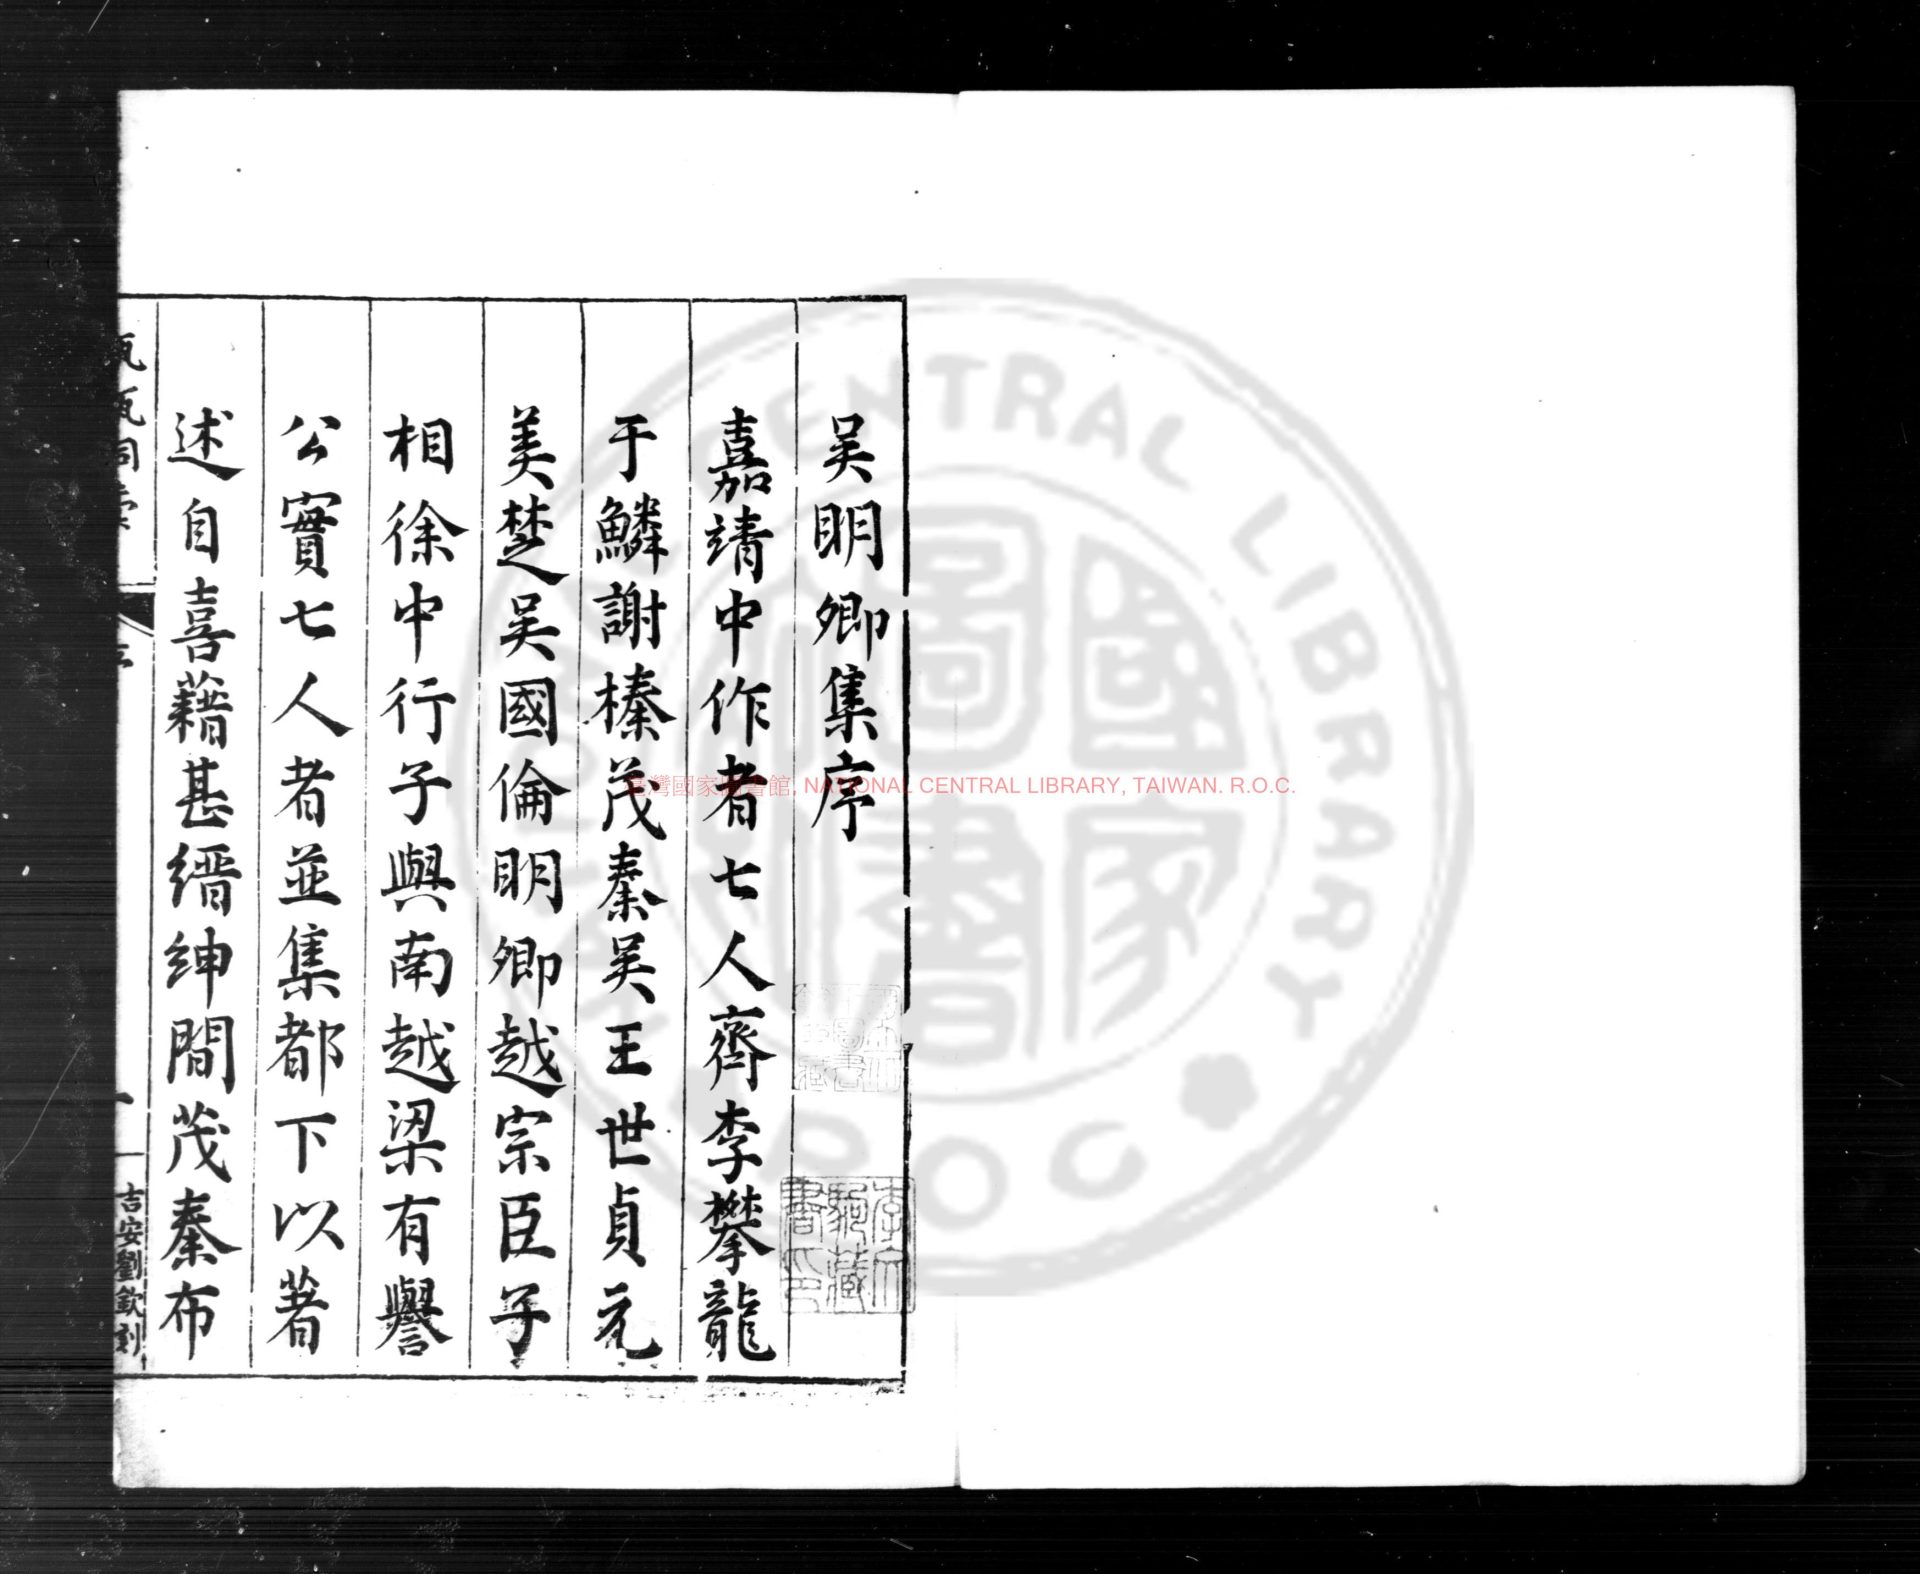 吳明卿集序
嘉靖中作者七人齊李攀龍
于鱗謝榛茂秦吳王世貞元
美楚吳國倫明卿越宗臣子
相徐中行子與南越梁有譽
公實七人者並集都下以著
述自喜藉甚縉紳間茂秦布
吉安劉欽刻
臺灣國家圖書館, NATIONAL CENTRAL LIBRARY, TAIWAN. R.O.C.
CENTRAL LIBRARY
國家圖書
ROC